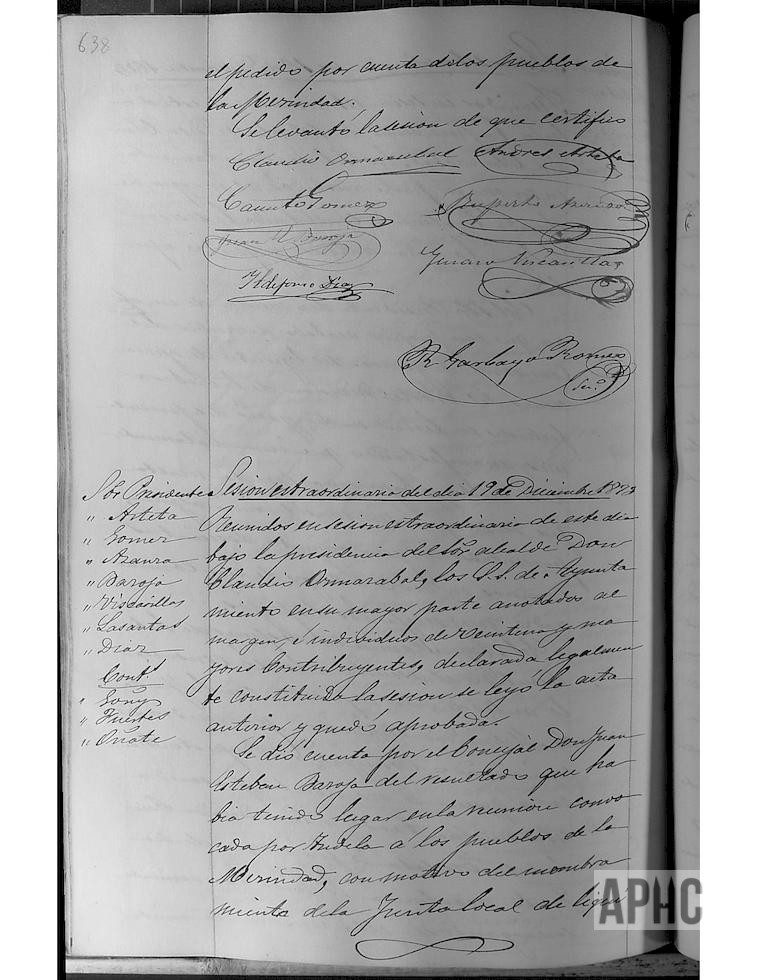 638
el pedido por cuenta de los pueblos de
la Merindad.
Se levantó la sesion de que certifico
Claudio Ormazabal Andres Arteta
Canuto Gomez Ruperto
Juan E. Baroja
Genaro Viscasillas
Ildefonso Diaz
R. Garbayo Romeo
Srio.
Sesion extraordinaria del dia 19 de Diciembre 1893
Sor Presidente
" Arteta
" Gomez
" Azanza
" Baroja
" Viscasillas
" Lasantas
" Diaz
Cont.
" Goñy
" Fuertes
" Oñate
Reunidos en sesion extraordinaria de este dia
bajo la presidencia del Sor alcalde Don
Claudio Ormazabal, los S.S. de Ayunta
miento en su mayor parte anotados al
margen, é individuos de Veintena y ma
yores Contribuyentes, declarada legalmen
te constituida la sesion se leyó la acta
anterior y quedó aprobada.
Se dió cuenta por el Concejal Don Juan
Esteban Baroja del resultado que ha
bia tenido lugar en la reunion convo
cada por Tudela á los pueblos de la
Merindad, con motivo del nombra
miento de la Junta local de liqui
APHC